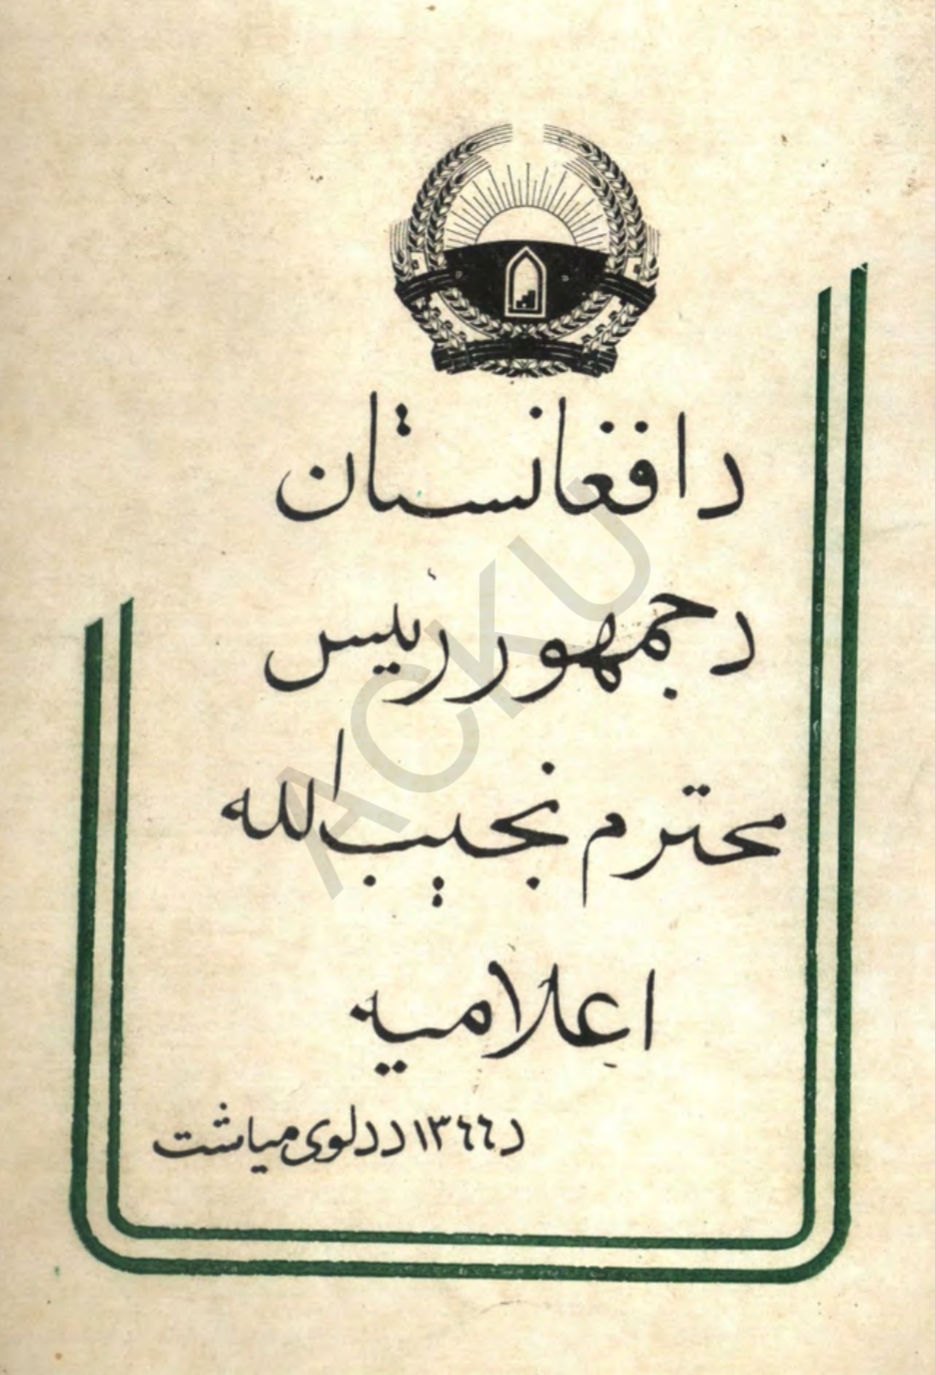 د افغانستان
د جمهور رییس
محترم نجیب الله
اعلامیه
د ۱۳۶۶ د دلوی میاشت
ACKU